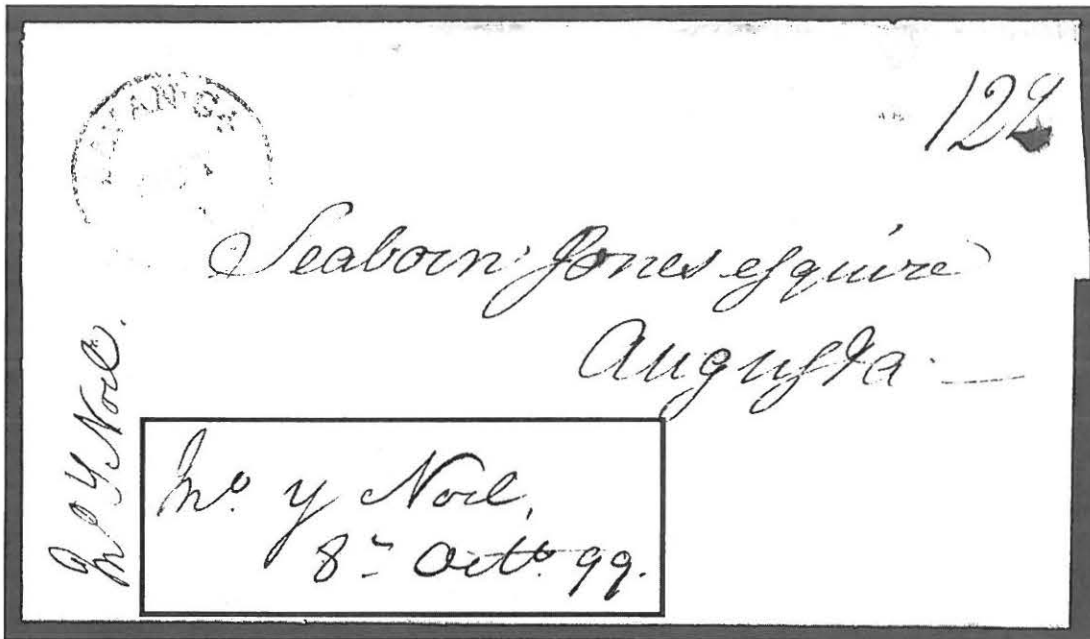 AVAN·GA
12½
Seaborn Jones esquire
Augusta —
Mº Y Noel.
Mº. y Noel,
8th Octº. 99.